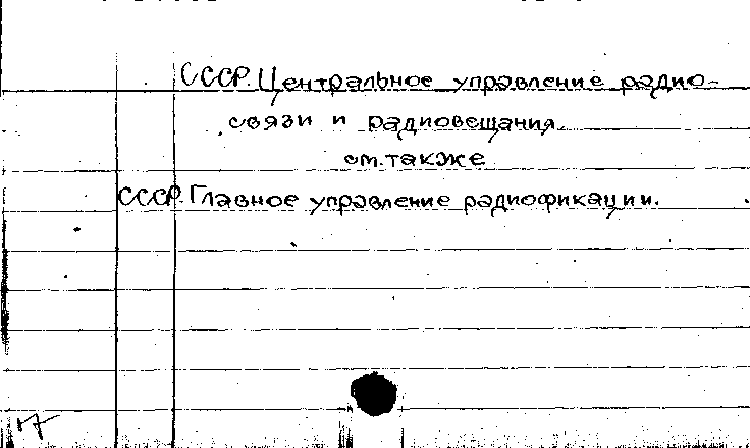 СССР. Центральное управление радио-
связи и радиовещания.
см. также
СССР. Главное управление радиофикации.